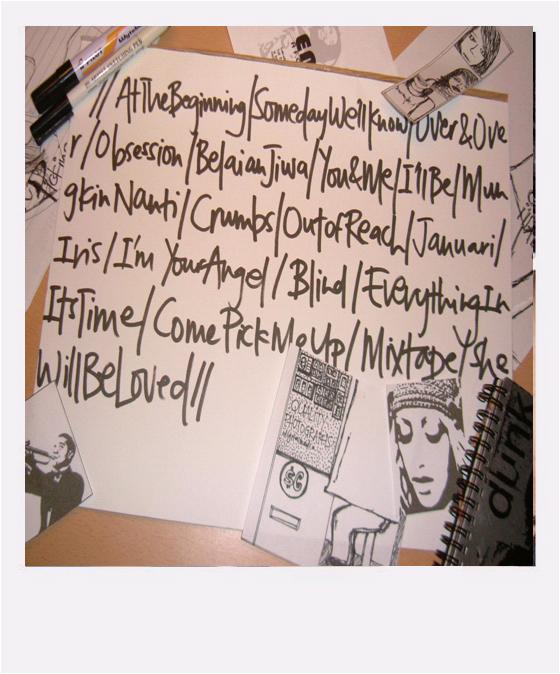 //AtTheBeginning/SomedayWe'llKnow/Over&Ove
r/Obsession/BelaianJiwa/You&Me/I'llBe/Mun
gkinNanti/Crumbs/OutofReach/Januari/
Iris/I'm YourAngel//Blind/EverythingIn
ItsTime/ComePickMeUp/Mixtape/She
WillBeLoved//
QUALITY
PHOTOGRAPHS
dunk